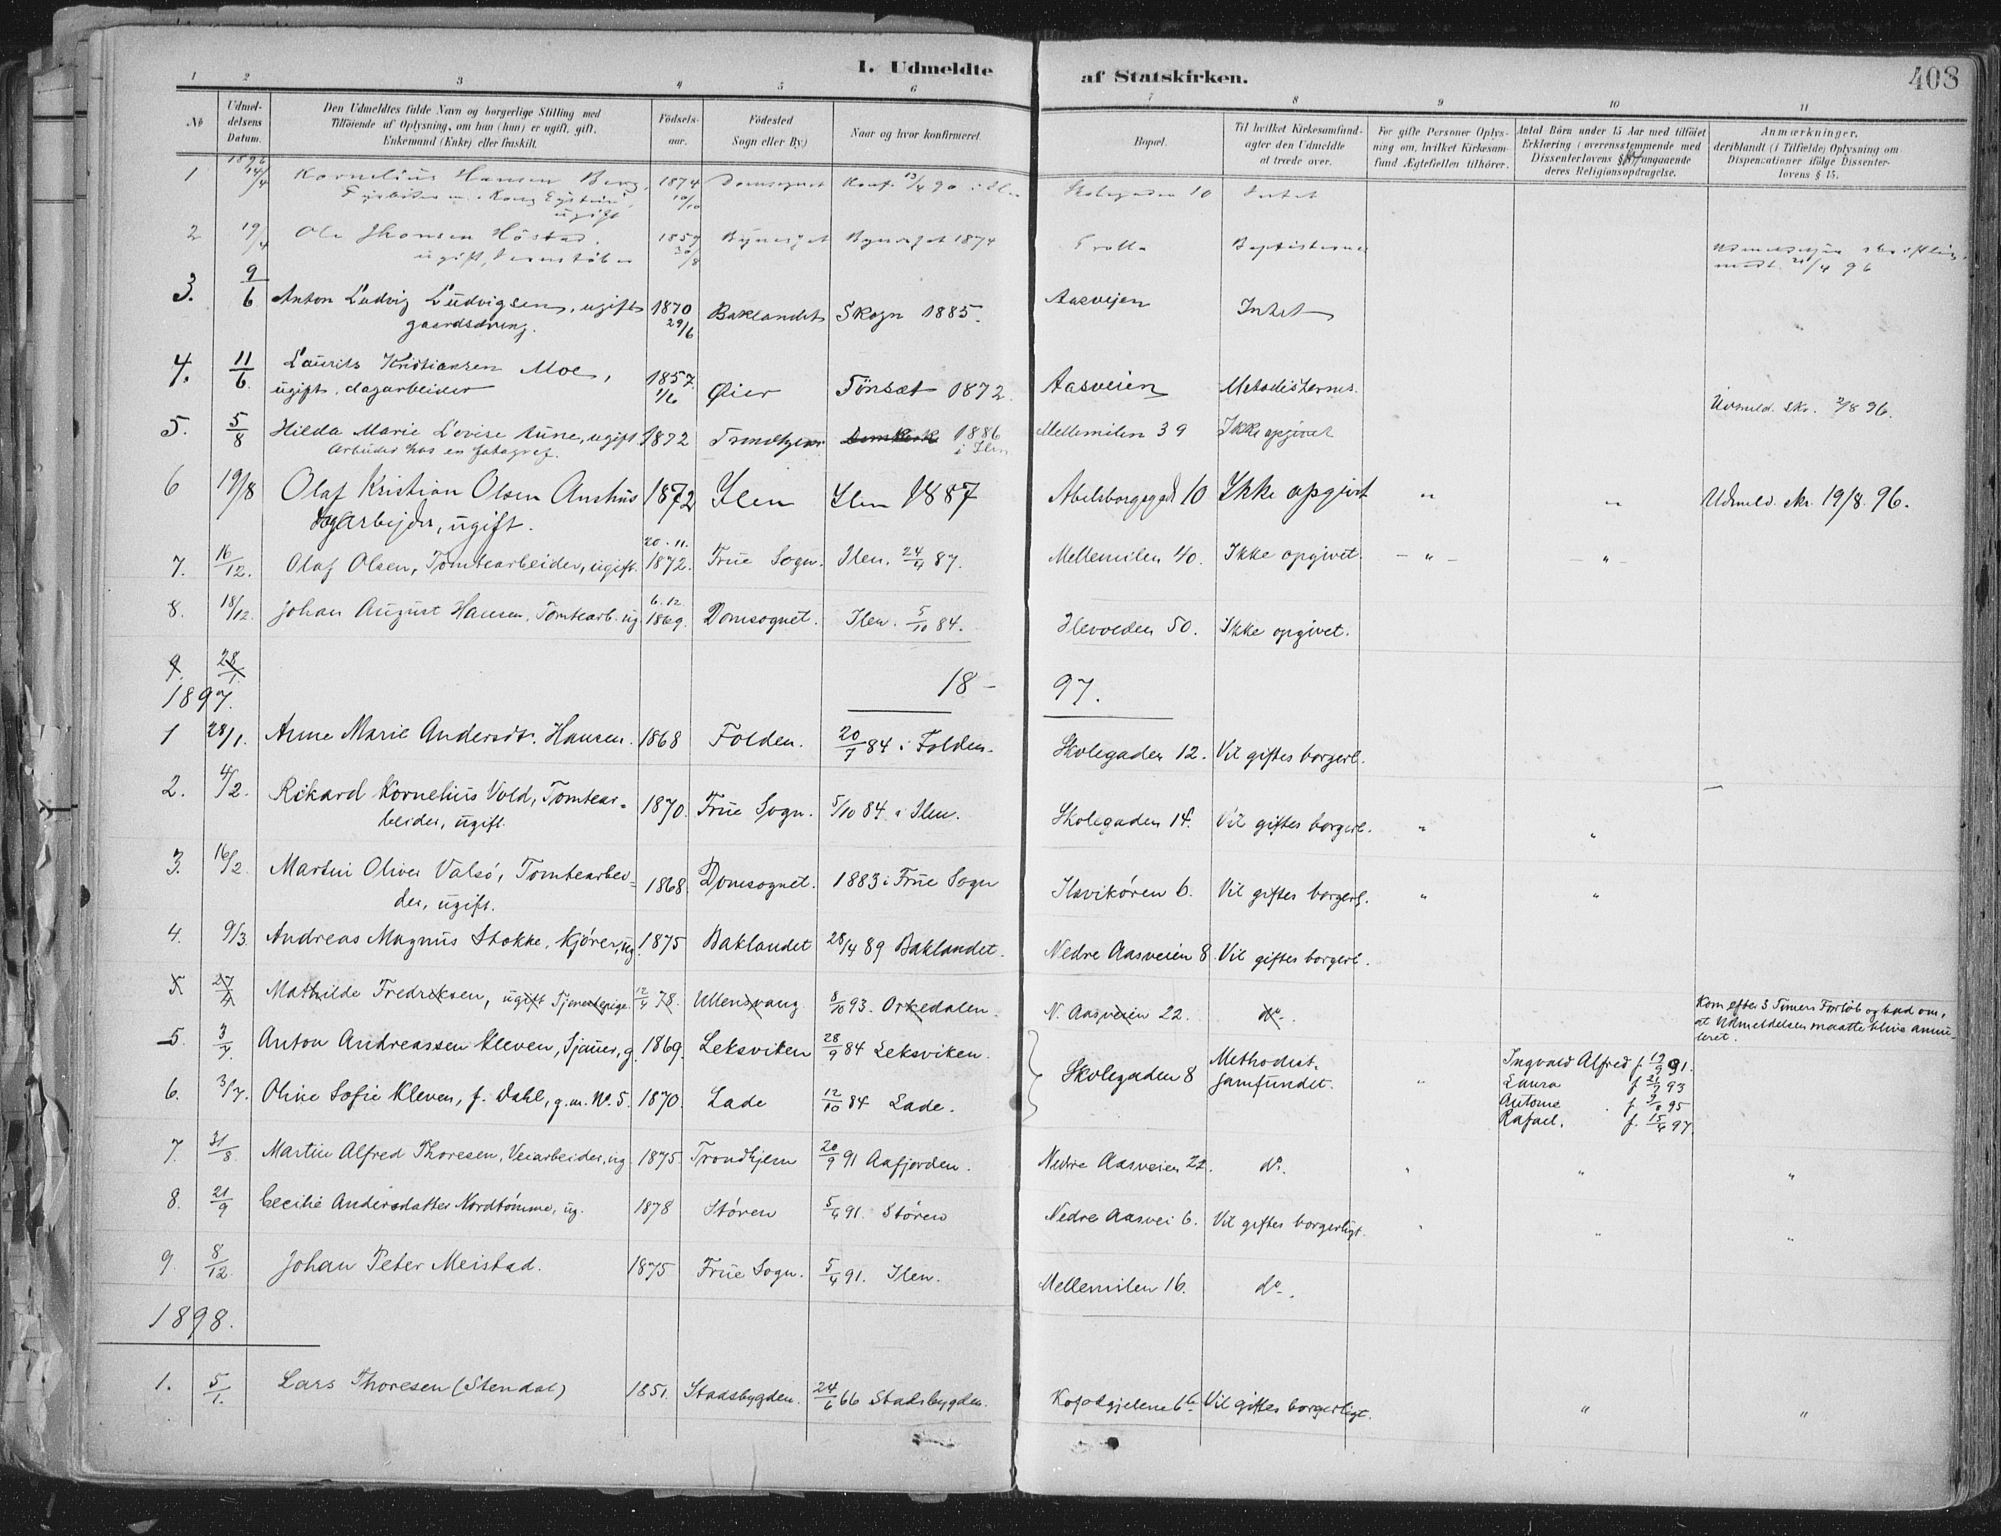 I. Udmeldte af Statskirken.
403
1 2 3 4 5 6 7 8 9 10 11
No
Udmeldelsens Datum.
Den Udmeldtes fulde Navn og borgerlige Stilling med
Tilföiende af Oplysning, om han (hun) er ugift, gift,
Enkemand (Enke) eller fraskilt.
Födselsaar.
Födested
Sogn eller By.)
Naar og hvor konfirmeret.
Bopæl.
Til hvilket Kirkesamfund
agter den Udmeldte
at træde over.
For gifte Personer Oplysning
om, hvilket Kirkesamfund
Ægtefællen tilhörer.
Antal Börn under 15 Aar med tilföiet
Erklæring i overensstemmende med
Dissenterlovens § angaaende
deres Religionsopdragelse.
Anmærkninger,
deriblandt (i Tilfælde) Oplysning om
Dispensationer ifölge Dissenterlovens § 15.
1896
1 14/4 Kornelius Hansen Berg, 1874 10/10 Domsognet Konf. 13/4 90 i Ilen Skolegaden 10 Intet
Fyrböter Kong Eystein, ugift
2 19/4 Ole Jhonsen Höstad. 1859 30/8 Bynesset Bynesset 1874 Trolla Baptisterne
ugift, Jernstöber
21/4 96
3. 9/6 Anton Ludvig Ludvigsen, ugift 1870 29/6 Baklandet Skogn 1885. Aasveien Intet
gaardsdreng.
4. 11/6. Laurits Kristiansen Moe, 1857. 1/6 Øier Tönset 1872. Aasveien Metodisternes.
ugift, dagarbeider
Udmeld. skr. 2/8 96.
5. 5/8 Hilda Marie Lovise Aune, ugift 1872 Trondhjem Domkirk 1886 i Ilen Mellemilen 39 Ikke opgivet
Arbeider hos en fotograf.
6 19/8 Olaf Kristian Olsen Aushus 1872 Ilen Ilen 1887 Abelsborggd 10 Ikke opgivet " " Udmeld. skr. 19/8. 96.
Dagarbejder, ugift.
7. 16/12. Olaf Olsen, Tomtearbeider, ugift. 20.11. 1872. Frue Sogn. Ilen. 24/4 87. Mellemilen 40. Ikke opgivet. — " — — " —
8. 18/12. Johan August Hansen, Tomtearb. ug 6.12 1869. Domsognet. Ilen. 5/10 84. Ilevolden 50. Ikke opgivet.
9. 28/1.
18 — 97.
1897.
1 28/1. Anne Marie Andersdt. Hansen. 1868 Folden. 20/7 84 i Folden. Skolegaden 12. Vil giftes borgerl.
2. 4/2. Rikard Kornelius Vold, Tomtear- 1870. Frue Sogn. 5/10 84. i Ilen. Skolegaden 14. Vil giftes borgerl. " "
beider, ugift.
3. 16/2 Martin Oliver Valsö, Tomtearbei- 1868. Domsognet. 1883 i Frue Sogn Ilsvikören 6. Vil giftes borgerl. " "
der, ugift.
4. 9/3. Andreas Magnus Stokke, Kjörer, ug. 1875 Baklandet 28/4 89 Baklandet. Nedre Aasveien 8. Vil giftes borgerl.
5 Mathilde Fredriksen, ugift Tjenestepige. 12/4 78. Ullensvang 8/10 93. Orkedalen. N. Aasveien 22. do.
Kom efter 3 Timers Forløb og bad om,
at Udmeldelsen maatte blive annul-
leret.
5. 3/7 Anton Andreassen Kleven, Sjauer, g. 1869. Leksviken 28/9 84 Leksviken. Skolegaden 8 Methodist-
samfundet. " Ingvald Alfred f. 19/9 91.
Laura f 21/7 93
Antone f. 9/8 95
Rafael. f. 15/4 97
6. 3/7. Oline Sofie Kleven, f. Dahl, g. m. No. 5. 1870. Lade 12/10 84 Lade.
7. 31/8. Martin Alfred Thoresen, Veiarbeider, ug. 1875 Trondhjem 20/9 91 Aafjorden. Nedre Aasveien 22. do. " " "
8. 21/9 Cecilie Andersdatter Nordtömme, ug. 1878 Stören 5/4 91. Stören Nedre Aasvei 6. Vil giftes borgerligt. " " "
9. 8/12. Johan Peter Meistad. 1875 Frue Sogn. 5/4 91. Ilen. Mellemilen 16. do.
1898.
1. 5/1. Lars Thoresen (Stendal) 1851. Stadsbygden. 24/6 66 Stadsbygden. Kofodgjelene 1b Vil giftes borgerligt. " "